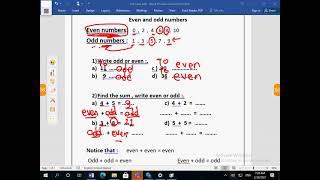 Even and odd numbers
Even numbers : 0 , 2 , 4 , 6 , 8 , 10
Odd numbers : 1 , 3 , 5 , 7 , 9
1) Write odd or even :
a) odd c) To even
b) 9 odd d) To even
2) Find the sum , write even or odd :
a) 4 + 5 = 9 c) 4 + 2 = ........
even + odd = odd
b) 3 + 8 = 11 d) 5 + 5 = ........
odd + even
Notice that : even + even = even
Odd + odd = even Even + odd = odd